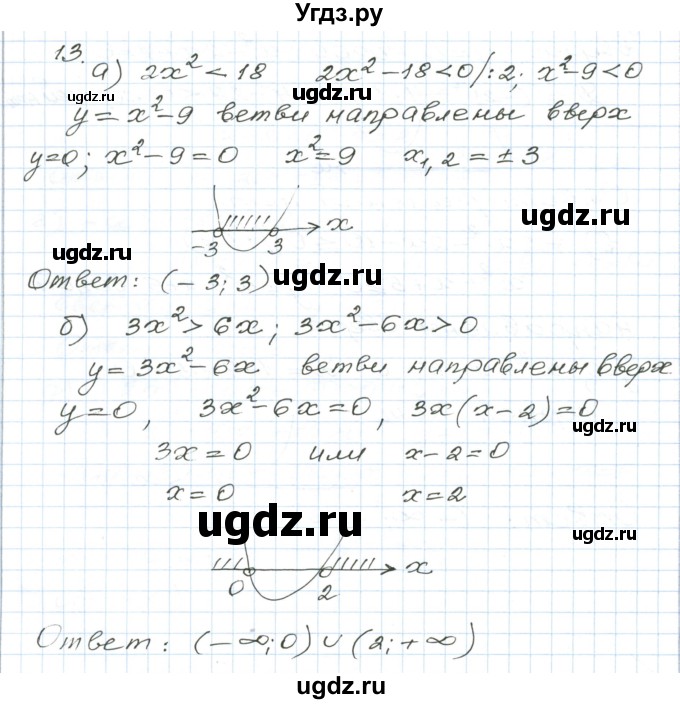 Угдз.ру
13.
а) 2x² < 18 2x² - 18 < 0 /: 2; x² - 9 < 0
ugdz.ru ugdz.ru ugdz.ru
y = x² - 9 ветви направлены вверх
y = 0; x² - 9 = 0 x² = 9 x₁,₂ = ± 3
ugdz.ru
-3 3 x
ugdz.ru
Ответ: (-3; 3) ugdz.ru
б) 3x² > 6x; 3x² - 6x > 0
y = 3x² - 6x ветви направлены вверх
y = 0, 3x² - 6x = 0, 3x(x - 2) = 0
ugdz.ru
3x = 0 или x - 2 = 0
x = 0 x = 2
ugdz.ru ugdz.ru
0 2 x
Ответ: (-∞; 0) ∪ (2; +∞)
ugdz.ru